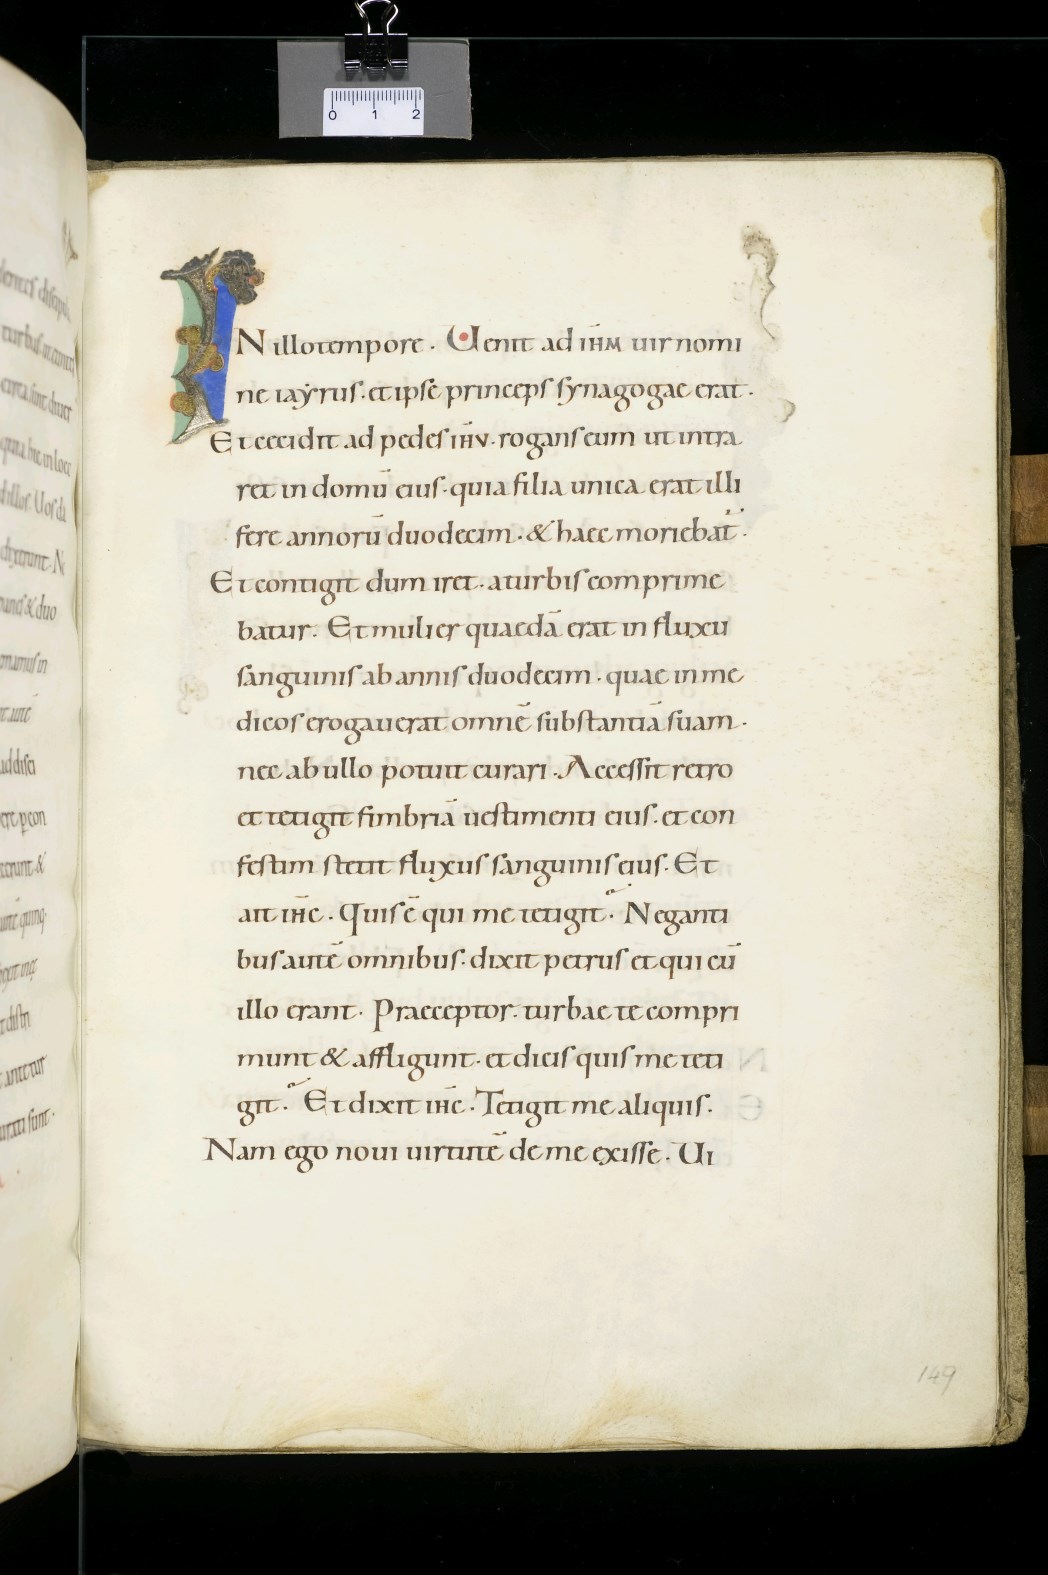 0 1 2
IN illo tempore. Uenit ad ih̄m uir nomi
ne iaẏrus. et ipse princeps synagogae erat.
Et cecidit ad pedes ih̄u. rogans eum ut intra
ret in domū eius. quia filia unica erat illi
fere annorū duodecim. & haec moriebat̄.
Et contigit dum iret. a turbis comprime
batur. Et mulier quaedā erat in fluxu
sanguinis ab annis duodecim. quae in me
dicos erogauerat omnē substantiā suam.
nec ab ullo potuit curari. Accessit retro
et tetigit fimbriā uestimenti eius. et con
festim stetit fluxus sanguinis eius. Et
ait ih̄c. Quis ē qui me tetigit? Neganti
bus autē omnibus. dixit petrus et qui cū
illo erant. Praeceptor. turbae te compri
munt & affligunt. et dicis quis me teti
git? Et dixit ih̄c. Tetigit me aliquis.
Nam ego noui uirtutē de me exisse. Ui
149